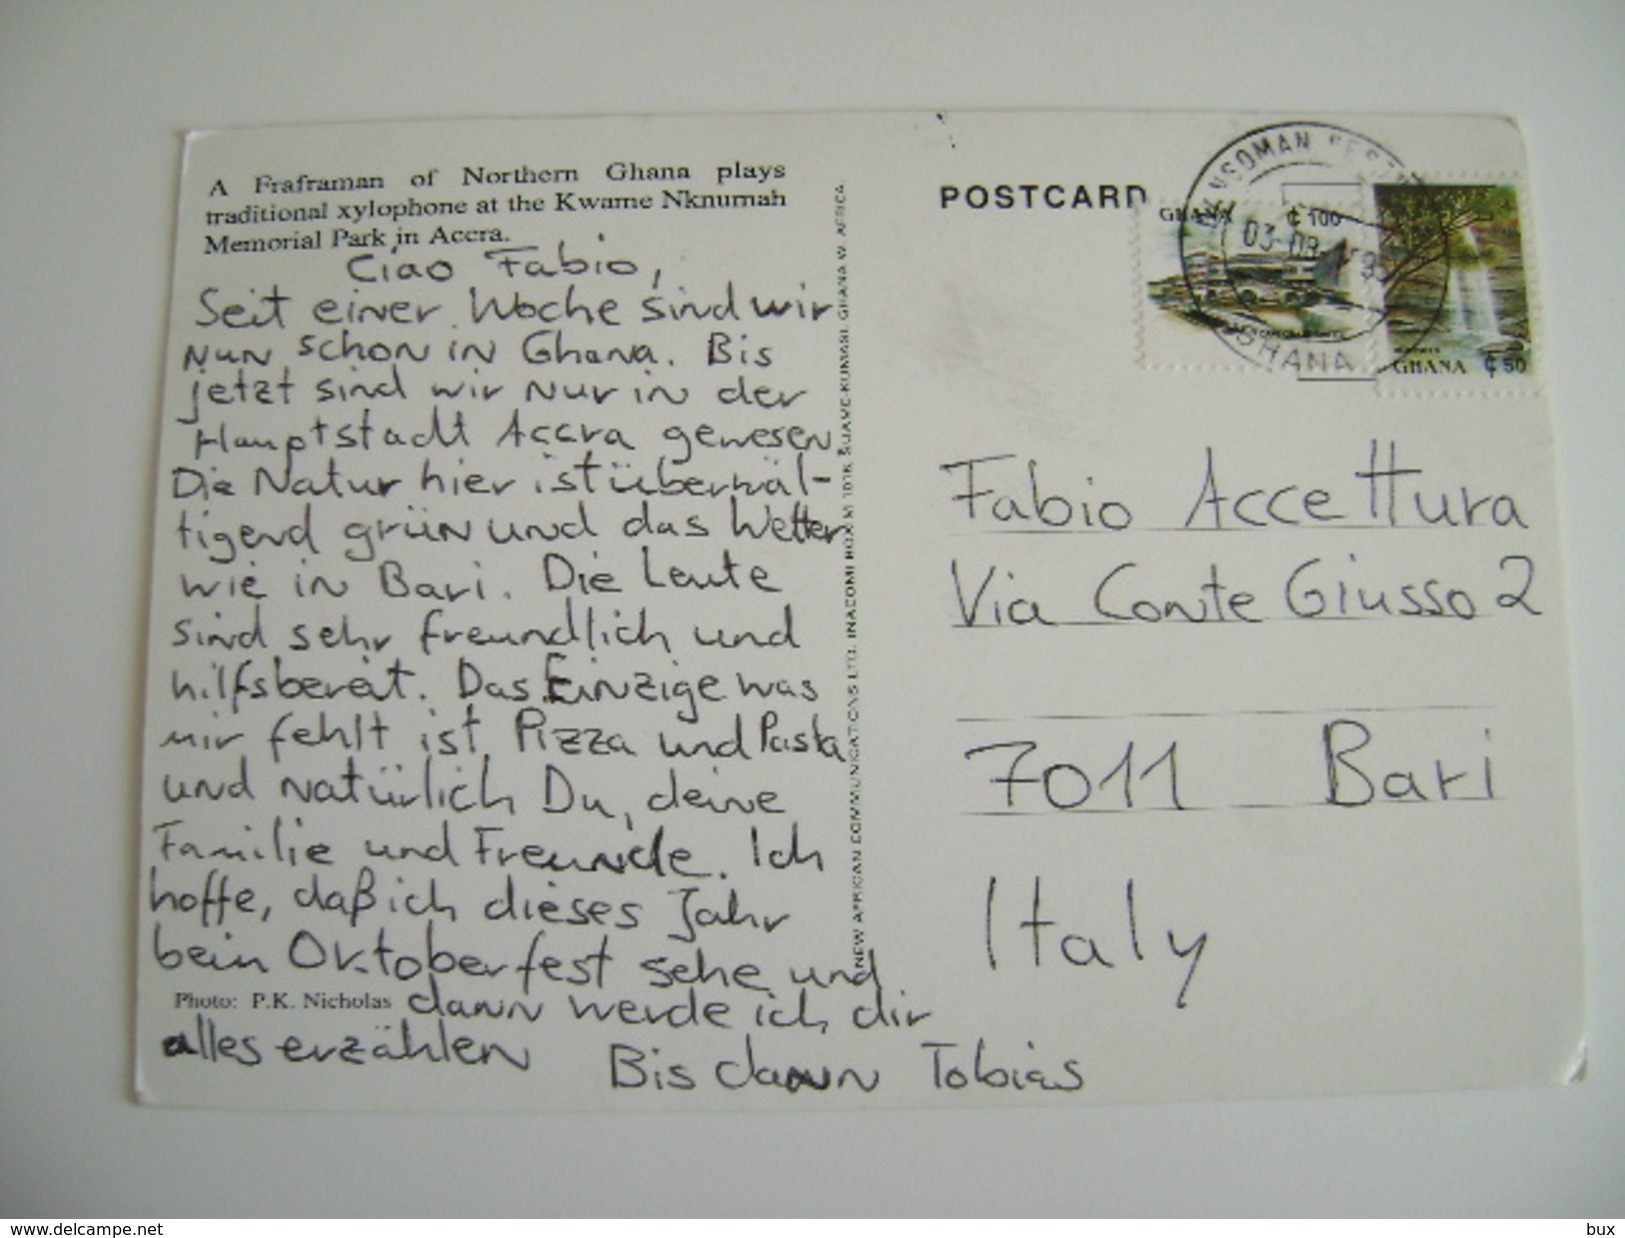 A Fraframan of Northern Ghana plays
traditional xylophone at the Kwame Nknumah
Memorial Park in Accra.
Ciao Fabio,
Seit einer Woche sind wir
nun schon in Ghana. Bis
jetzt sind wir nur in der
Hauptstadt Accra gewesen.
Die Natur hier ist überwäl-
tigend grün und das Wetter
wie in Bari. Die Leute
sind sehr freundlich und
hilfsbereit. Das Einzige was
mir fehlt ist Pizza und Pasta
und natürlich Du, deine
Familie und Freunde. Ich
hoffe, daß ich dieses Jahr
beim Oktoberfest sehe und
Photo: P.K. Nicholas dann werde ich dir
alles erzählen Bis dann Tobias
NEW AFRICAN COMMUNICATIONS LTD. INACOMI BOX M 1016 SUAME-KUMASI. GHANA W. AFRICA.
POSTCARD
GHANA ₵ 100
GHANA ₵ 50
03-09
GHANA
Fabio Accettura
Via Conte Giusso 2
7011 Bari
Italy
www.delcampe.net
bux